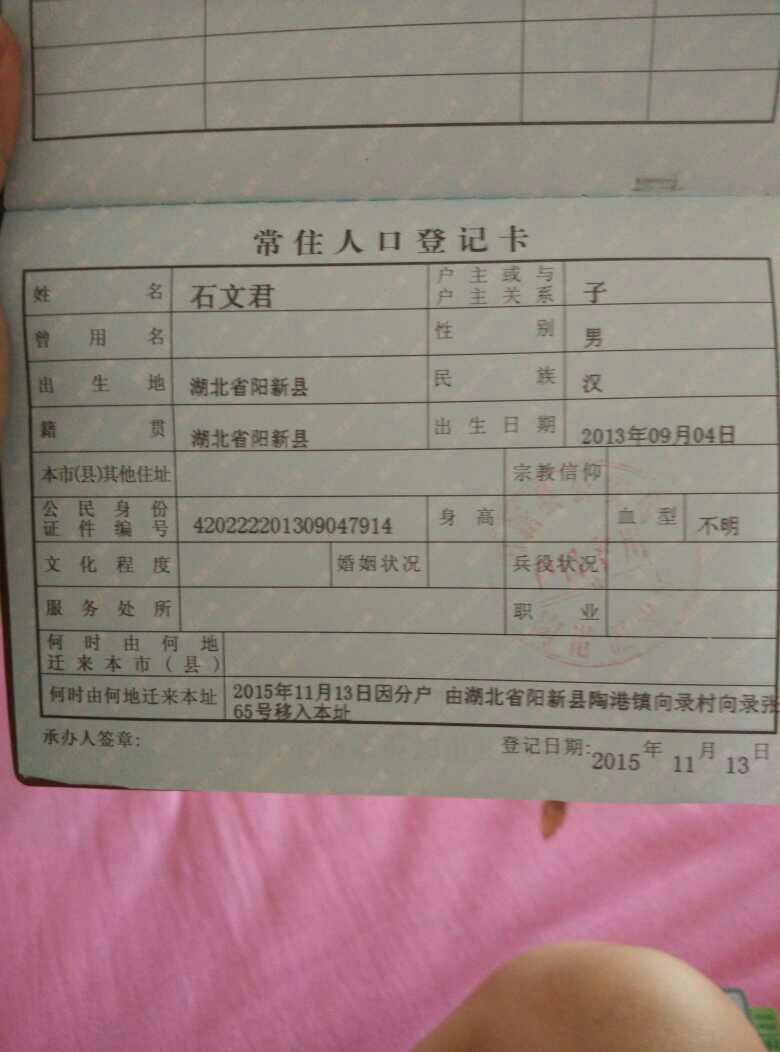 常住人口登记卡
姓名 石文君 户主或与户主关系 子
曾用名 性别 男
出生地 湖北省阳新县 民族 汉
籍贯 湖北省阳新县 出生日期 2013年09月04日
本市(县)其他住址 宗教信仰
公民身份证件编号 420222201309047914 身高 血型 不明
文化程度 婚姻状况 兵役状况
服务处所 职业
何时由何地迁来本市(县)
何时由何地迁来本址 2015年11月13日因分户 由湖北省阳新县陶港镇向录村向录张
65号移入本址
承办人签章: 登记日期:2015年11月13日